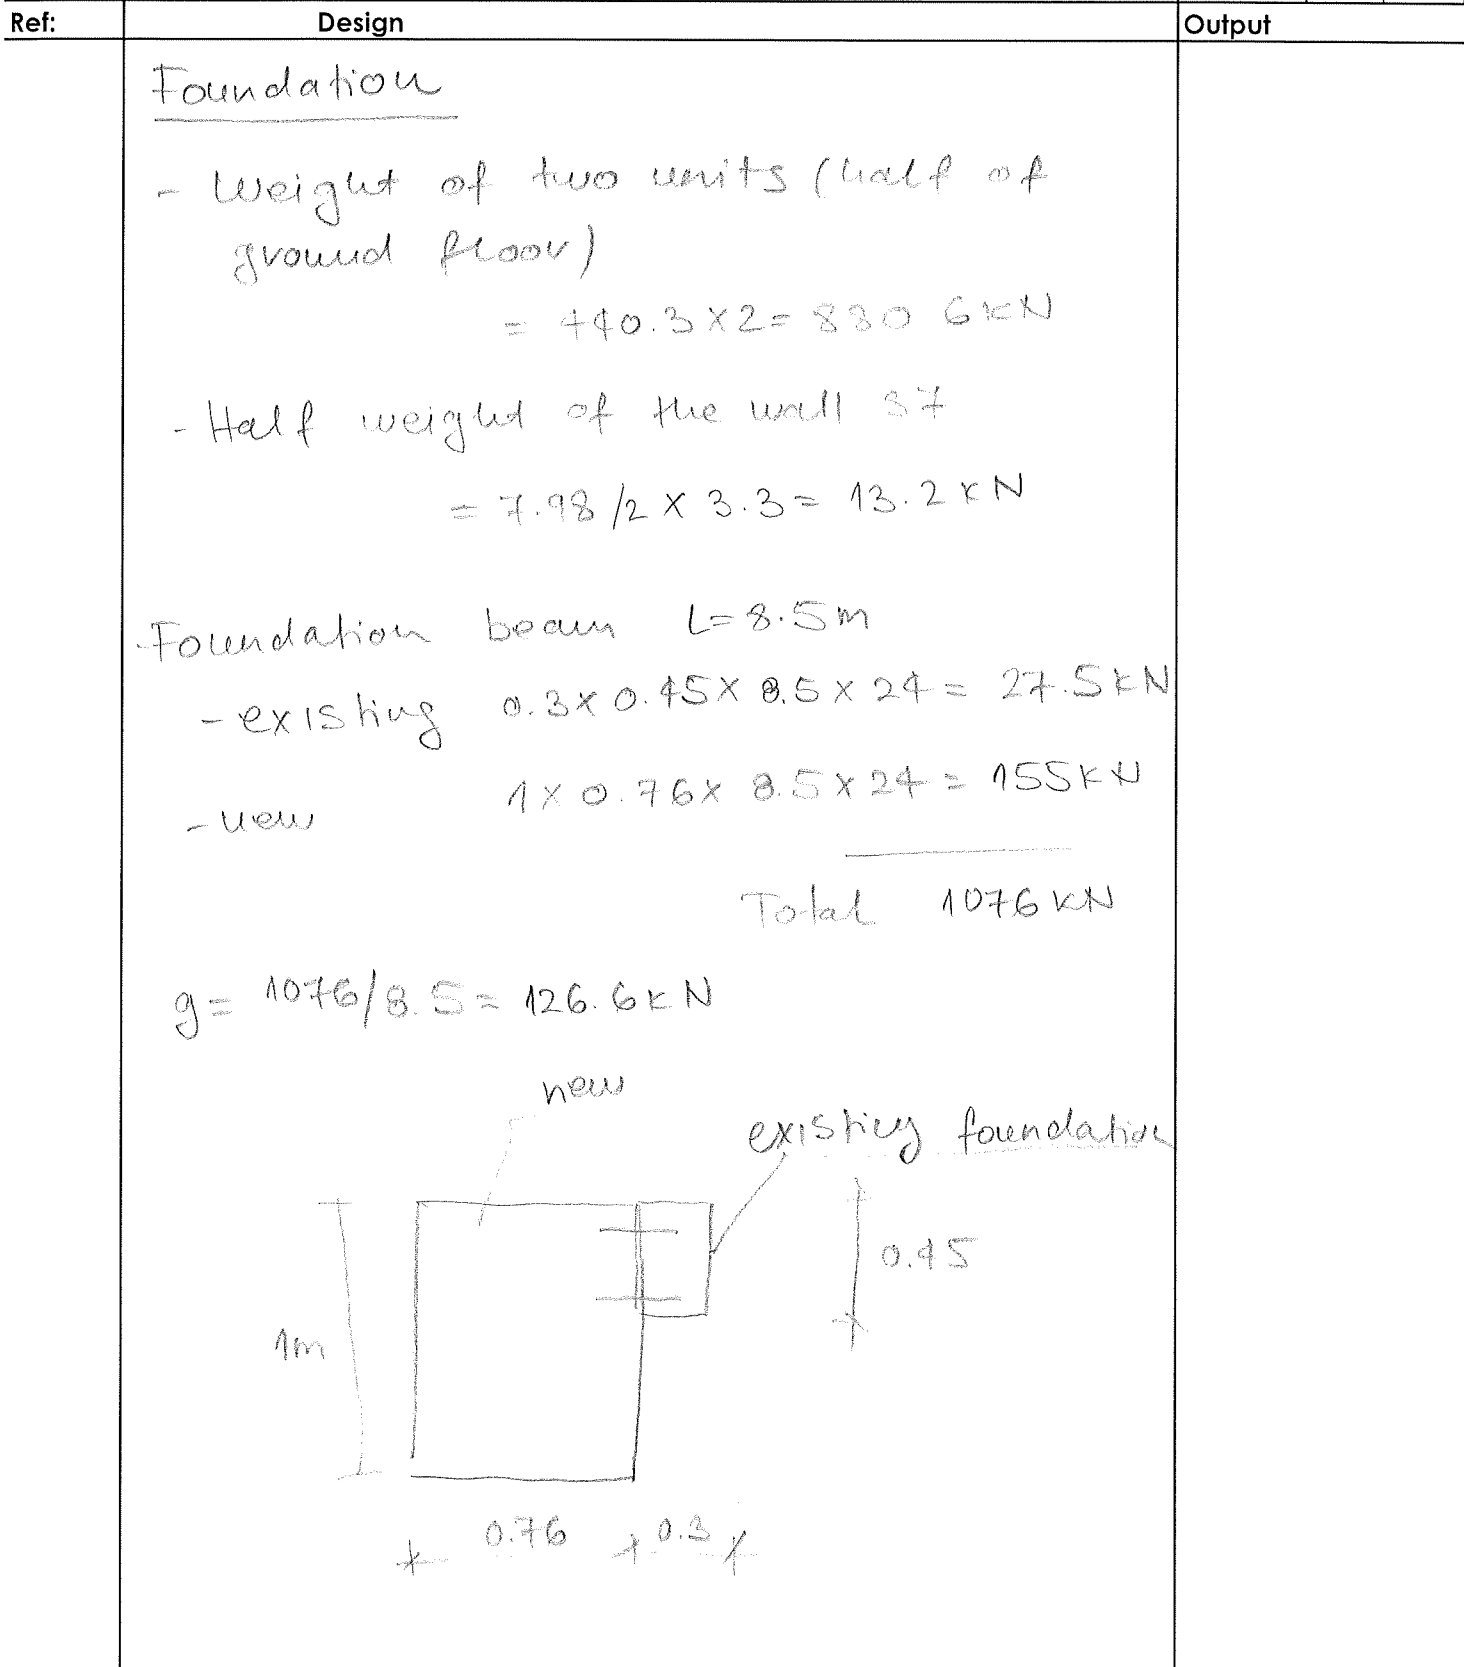 Ref: Design Output
Foundation
- Weight of two units (half of
ground floor)
= 440.3 × 2 = 880 6 kN
- Half weight of the wall 37
= 7.98 /2 × 3.3 = 13.2 kN
- Foundation beam L = 8.5m
- existing 0.3 × 0.45 × 8.5 × 24 = 27.5 kN
- new 1 × 0.76 × 8.5 × 24 = 155 kN
Total 1076 kN
g = 1076/8.5 = 126.6 kN
new
existing foundation
0.45
1m
0.76 0.3